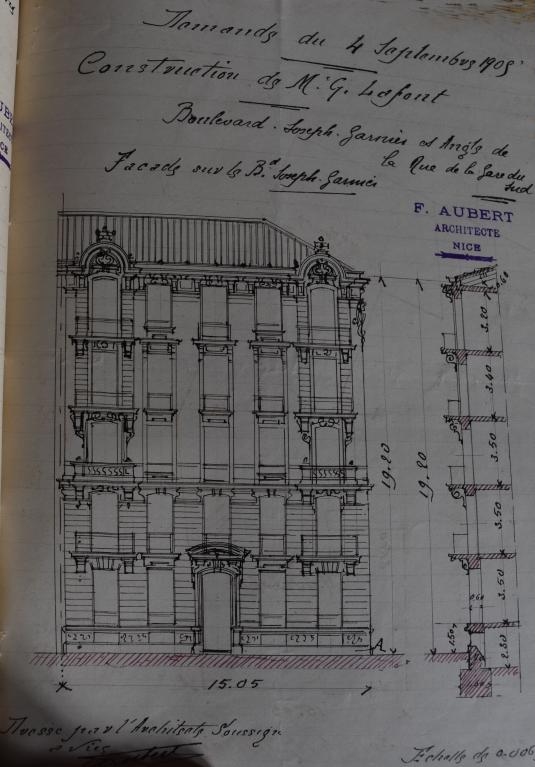 Demande du 4 Septembre 1905
Construction de Mr G. Lafont
Boulevard Joseph Garnier et Angle de
la Rue de la Gare du
Sud
Facade sur le Bd Joseph Garnier
F. AUBERT
ARCHITECTE
NICE
0.60
3.20
3.40
3.50
3.50
3.50
2.80
19.20
19.20
0.60
1.50
A
15.05
Dressé par l'Architecte Soussigné
à Nice
Echelle de 0.006